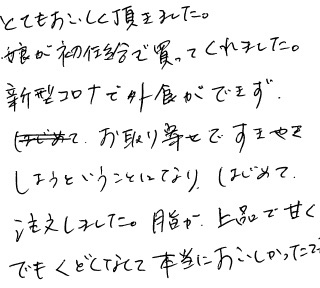 とてもおいしく頂きました。
娘が初任給で買ってくれました。
新型コロナで外食ができず、
お取り寄せですきやき
しようということになり、はじめて
注文しました。脂が上品で甘く
でもくどくなくて本当においしかったです